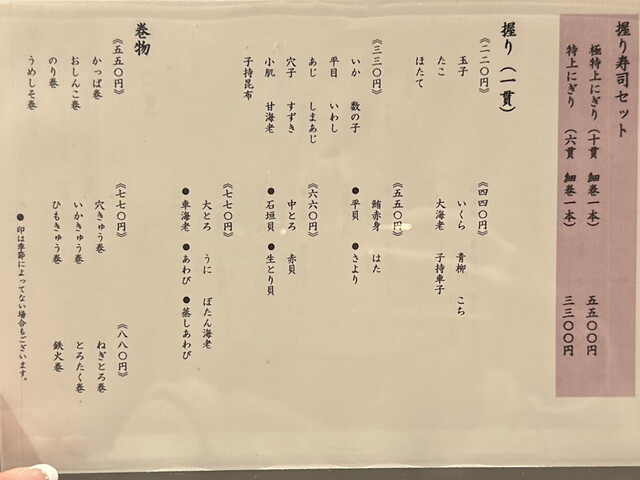 握り寿司セット
極特上にぎり（十貫　細巻一本）　五五〇〇円
特上にぎり（六貫　細巻一本）　三三〇〇円
握り（一貫）
《二二〇円》
玉子
たこ
ほたて
《四四〇円》
いくら　青柳　こち
大海老　子持車子
《三三〇円》
いか　数の子
平目　いわし
あじ　しまあじ
穴子　すずき
小肌　甘海老
子持昆布
《五五〇円》
鮪赤身　はた
●平貝　●さより
《六六〇円》
中とろ　赤貝
●石垣貝　●生とり貝
《七七〇円》
大とろ　うに　ぼたん海老
●車海老　●あわび　●蒸しあわび
巻物
《五五〇円》
かっぱ巻
おしんこ巻
のり巻
うめしそ巻
《七七〇円》
穴きゅう巻
いかきゅう巻
ひもきゅう巻
《八八〇円》
ねぎとろ巻
とろたく巻
鉄火巻
●印は季節によってない場合もございます。